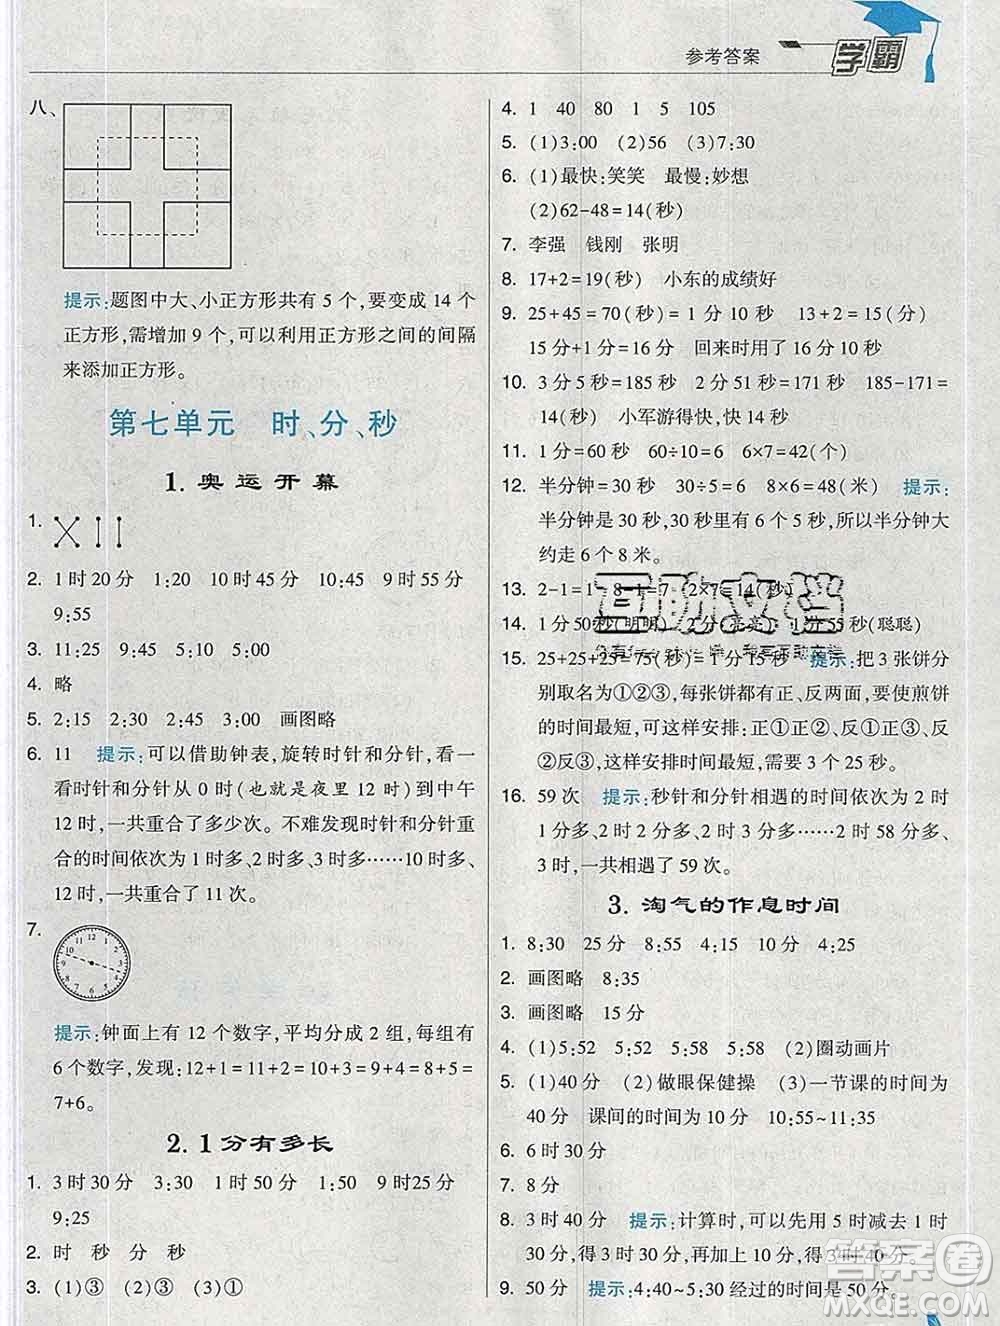 参考答案
学霸
八、
提示:题图中大、小正方形共有 5 个,要变成 14 个
正方形,需增加 9 个,可以利用正方形之间的间隔
来添加正方形。
第七单元 时、分、秒
1. 奥运开幕
1.
2. 1 时 20 分 1:20 10 时 45 分 10:45
9:55
3. 11:25 9:45 5:10 8:00
4. 略
5. 2:15 2:30 2:45 3:00 画图略
6. 11 提示:可以借助钟表,旋转时针和分针,看一
看时针和分针从 0 时(也就是夜里 12 时)到中午
12 时,一共重合了多少次。不难发现时针和分针重
合的时间依次为 1 时多、2 时多、3 时多……10 时多、
12 时,一共重合了 11 次。
7.
提示:钟面上有 12 个数字,平均分成 2 组,每组有
6 个数字,发现:12+1=11+2=10+3=9+4=8+5=
7+6。
2. 1 分有多长
1. 3 时 30 分 3:30 1 时 50 分 1:50 9 时25分
9:25
2. 时 秒 分 秒
3. (1)③ (2)③ (3)①
4. 1 40 80 1 5 105
5. (1)3:00 (2)56 (3)7:30
6. (1)最快:笑笑 最慢:妙想
(2)62-48=14(秒)
7. 李强 钱刚 张明
8. 17+2=19(秒) 小东的成绩好
9. 25+45=70(秒)=1 分 10 秒 13+2=15(分)
15 分+1 分=16 分 回来时用了 16 分 10 秒
10. 3 分 5 秒=185 秒 2 分 51 秒=171 秒 185-171
=14(秒) 小军游得快,快 14 秒
11. 1 分=60 秒 60÷10=6 6×7=42(个)
12. 半分钟=30 秒 30÷5=6 8×6=48(米) 提示:
半分钟是 30 秒,30 秒里有 6 个 5 秒,所以半分钟大
约走 6 个 8 米。
13. 2-1=1 8-1=7 2×7=14(秒)
14. 1 分 50 秒(明明) 2 分(亮亮) 1 分 55 秒(聪聪)
15. 25+25+25=75(秒)=1 分 15 秒 提示:把 3 张饼分
别取名为①②③,每张饼都有正、反两面,要使煎饼
的时间最短,可以这样安排:正①正②、反①正③、反
②反③,这样安排时间最短,需要 3 个 25 秒。
16. 59 次 提示:秒针和分针相遇的时间依次为 2 时
1 分多、2 时 2 分多、2 时 3 分多……2 时 58 分多、
3 时,一共相遇了 59 次。
3. 淘气的作息时间
1. 8:30 25 分 8:55 4:15 10 分 4:25
2. 画图略 8:35
3. 画图略 15 分
4. (1)5:52 5:58 5:52 (2)圈动画片
5. (1)40 分 (2)做眼保健操 (3)一节课的时间为
40 分 课间的时间为 10 分 10:55~11:35
6. 6 时 30 分
7. 8 分
8. 3 时 40 分 提示:计算时,可以先用 5 时减去 1 时
30 分,得 3 时 30 分,再加上 10 分,得 3 时 40 分。
9. 50 分 提示:4:40~5:30 经过的时间是 50 分。
互助文档
答案圈
MXQE.COM